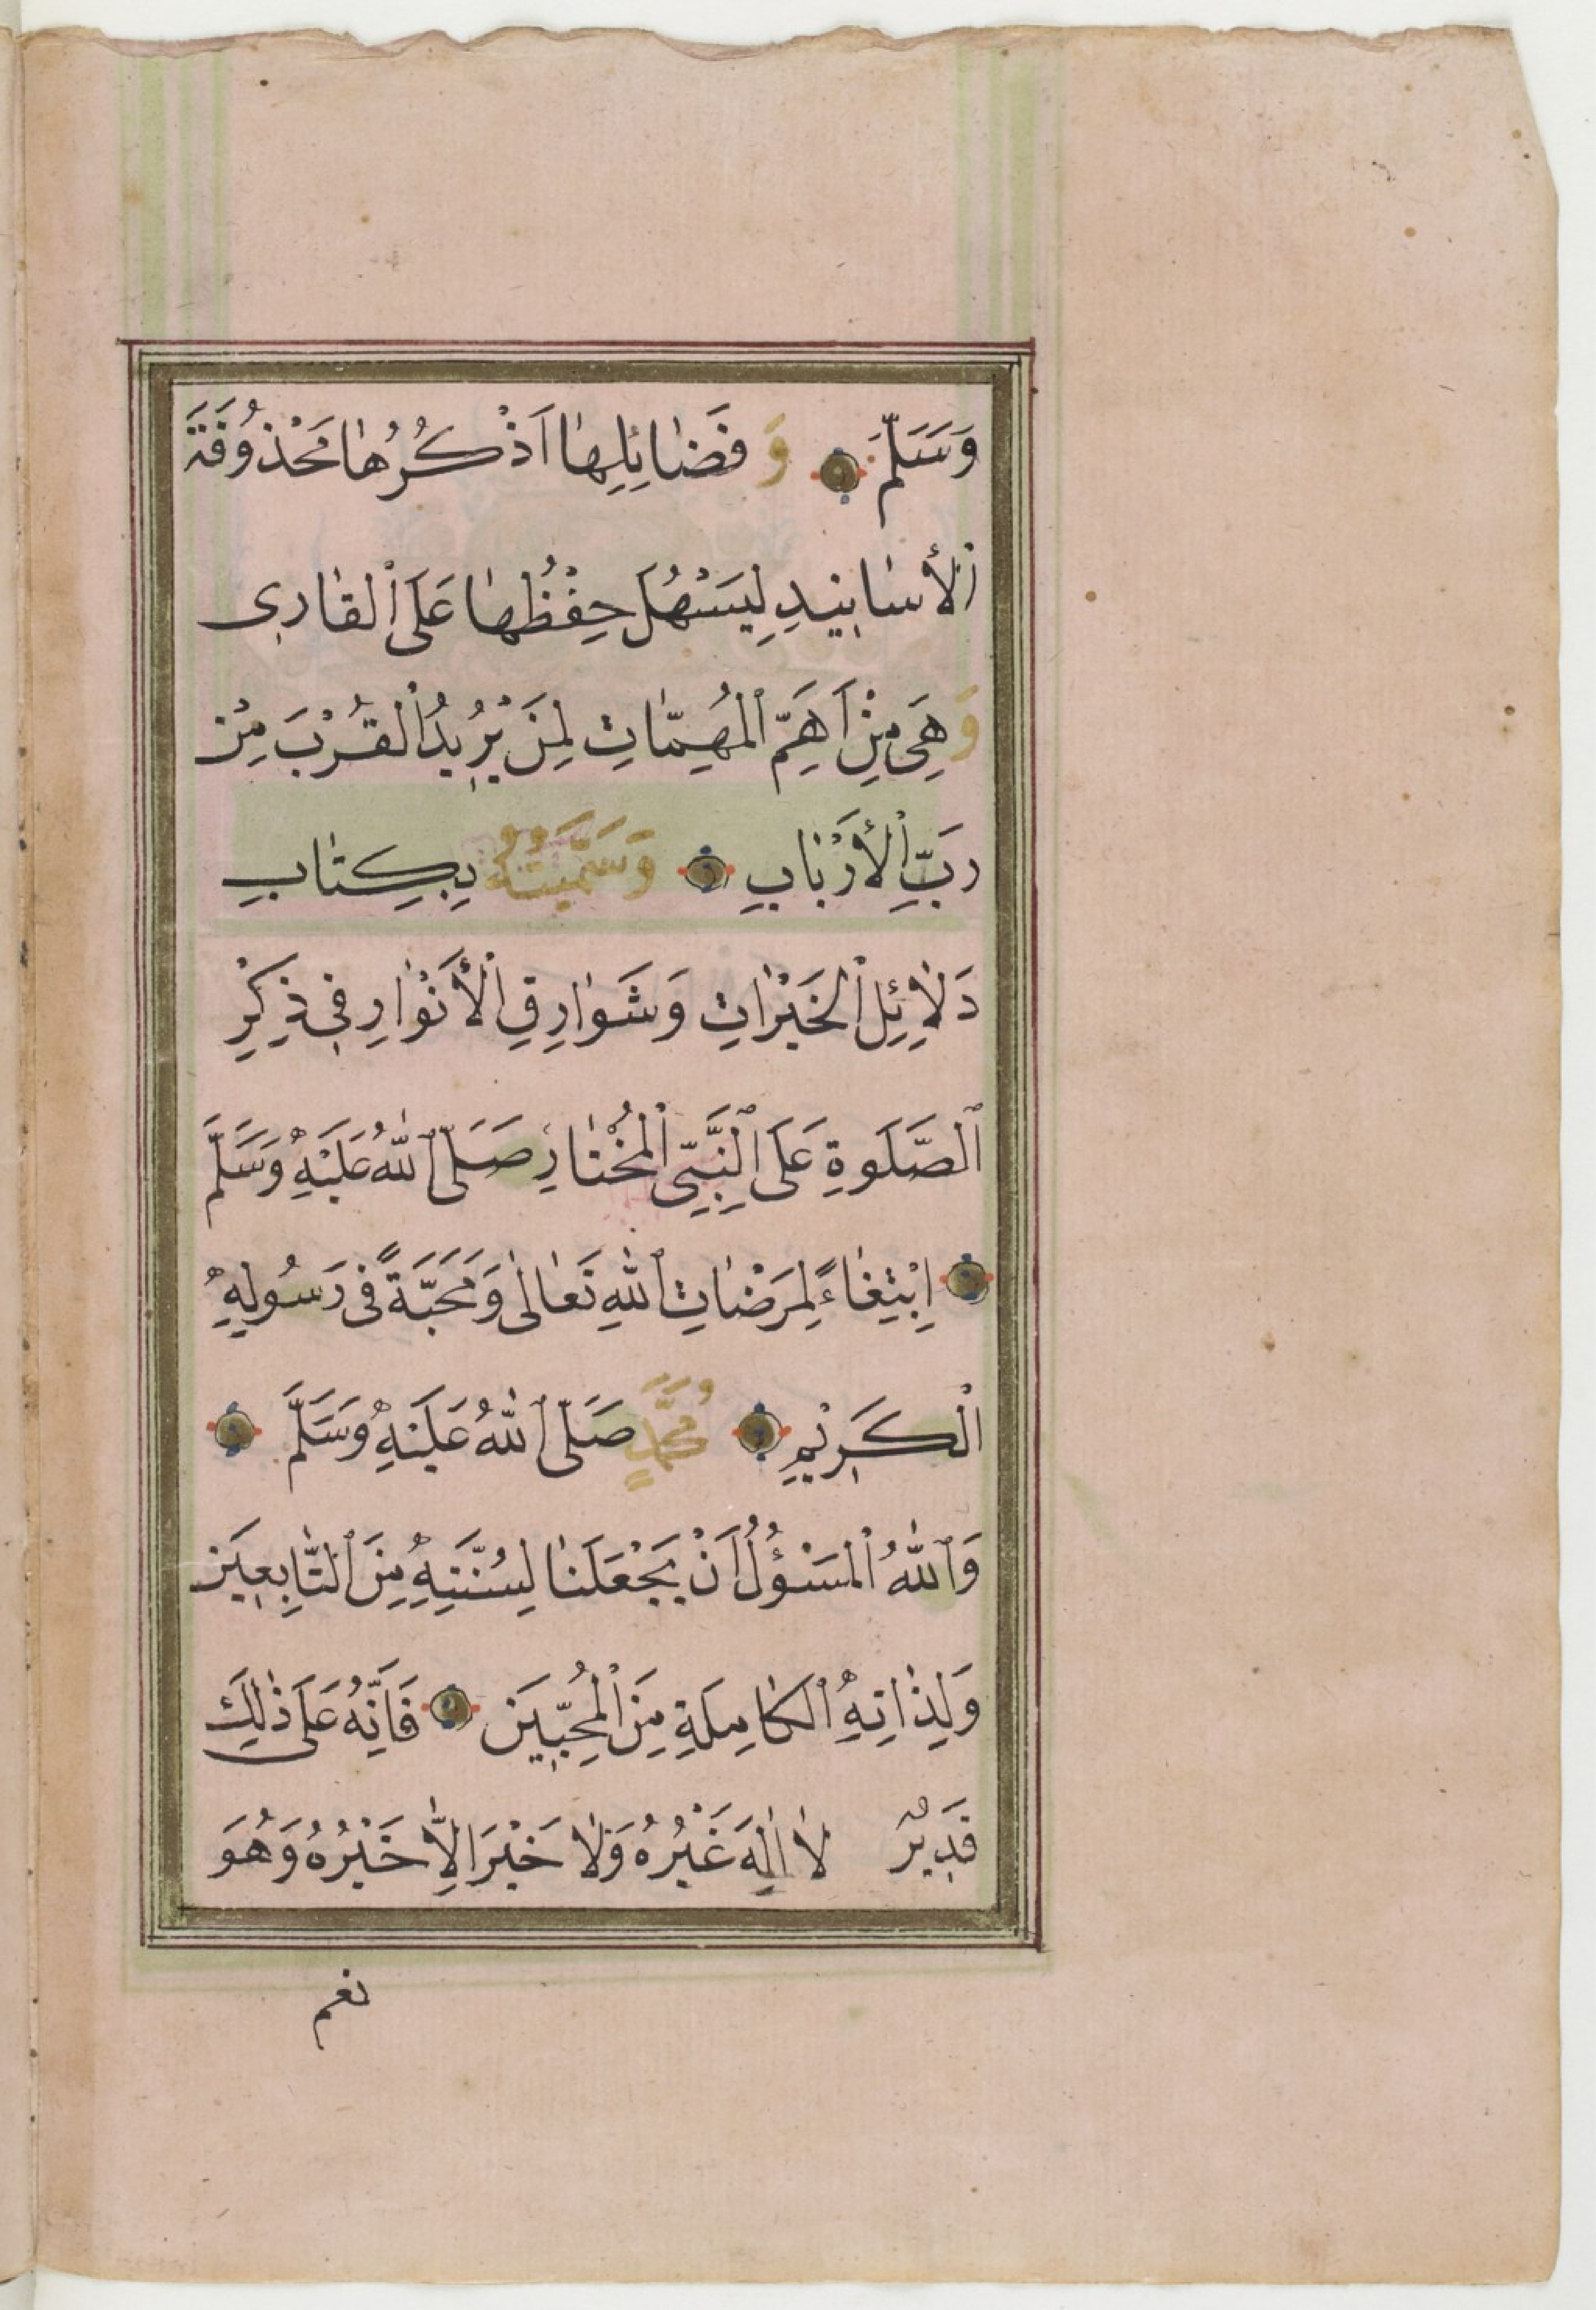 وَسَلَّمَ وَ فَضَائِلِهَا اَذْكُرُهَا مَحْذُوفَةَ
ٱلْأَسَانِيدِ لِيَسْهُلَ حِفْظُهَا عَلَى ٱلْقَارِى
وَهِىَ مِنْ اَهَمِّ ٱلْمُهِمَّاتِ لِمَنْ يُرِيدُ ٱلْقُرْبَ مِنْ
رَبِّ ٱلْأَرْبَابِ وَسَمَّيْتُهُ بِكِتَابِ
دَلَائِلِ ٱلْخَيْرَاتِ وَشَوَارِقِ ٱلْأَنْوَارِ فِى ذِكْرِ
ٱلصَّلَوةِ عَلَى ٱلنَّبِىِّ ٱلْمُخْتَارِ صَلَّى ٱللّٰهُ عَلَيْهِ وَسَلَّمَ
اِبْتِغَاءً لِمَرْضَاتِ ٱللّٰهِ تَعَالٰى وَمَحَبَّةً فِى رَسُولِهِ
ٱلْكَرِيْمِ مُحَمَّدٍ صَلَّى ٱللّٰهُ عَلَيْهِ وَسَلَّمَ
وَٱللّٰهُ ٱلْمَسْؤُلُ اَنْ يَجْعَلَنَا لِسُنَّتِهِ مِنَ ٱلتَّابِعِيَن
وَلِذَاتِهِ ٱلْكَامِلَةِ مِنَ ٱلْمُحِبِّيَن فَاِنَّهُ عَلَى ذٰلِكَ
قَدِيرٌ لَا اِلٰهَ غَيْرُهُ وَلَا خَيْرَ اِلَّا خَيْرُهُ وَهُوَ
نعم